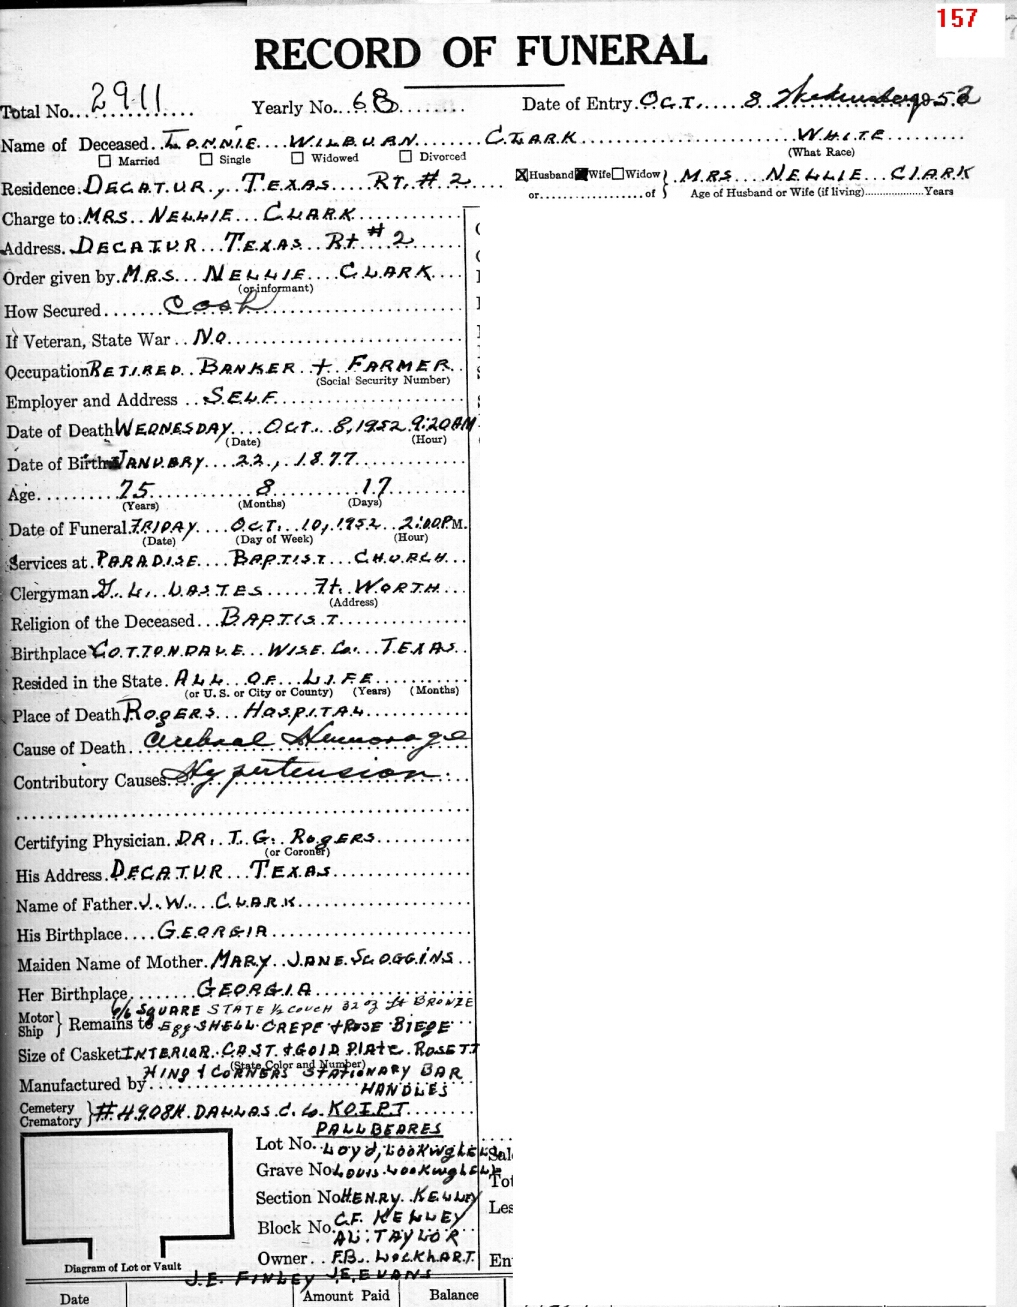 157
RECORD OF FUNERAL
Total No. 2911 Yearly No. 68 Date of Entry OCT. 8 1952
Name of Deceased LONNIE WILBURN CLARK WHITE
☐ Married ☐ Single ☐ Widowed ☐ Divorced (What Race)
Residence. DECATUR, TEXAS RT. #2 ☒ Husband ■ Wife ☐ Widow } MRS NELLIE CLARK
or of } Age of Husband or Wife (if living) Years
Charge to MRS. NELLIE CLARK
Address. DECATUR TEXAS Rt #2
Order given by MRS NELLIE CLARK
(or informant)
How Secured Cash
If Veteran, State War NO
Occupation RETIRED BANKER + FARMER
(Social Security Number)
Employer and Address SELF
Date of Death WEDNESDAY OCT. 8, 1952 9:20AM
(Date) (Hour)
Date of Birth JANUARY 22, 1877
Age 75 8 17
(Years) (Months) (Days)
Date of Funeral FRIDAY OCT. 10, 1952 2:00PM.
(Date) (Day of Week) (Hour)
Services at PARADISE BAPTIST CHURCH
Clergyman Ft. WORTH
(Address)
Religion of the Deceased BAPTIST
Birthplace COTTONDALE WISE Co. TEXAS
Resided in the State ALL OF LIFE
(or U. S. or City or County) (Years) (Months)
Place of Death ROgERS HOSPITAL
Cause of Death Cerebral Hemorage
Contributory Causes Hypertension
Certifying Physician DR. T. G. ROgERS
(or Coroner)
His Address DECATUR TEXAS
Name of Father J. W. CLARK
His Birthplace GEORGIA
Maiden Name of Mother MARY JANE SCOGGINS
Her Birthplace GEORGIA
6/6 SQUARE STATE ½ COUCH 32 oz BRONZE
Motor Ship } Remains to Egg SHELL CREPE + ROSE BIEGE
Size of Casket INTERIOR CAST + GOLD PLATE ROSETT
(State Color and Number)
HING + CORNERS STATIONARY BAR
Manufactured by HANDLES
Cemetery Crematory } DALLAS
PALLBEARES
Lot No. LOyd LOOKINgBILL Sal
Grave No LOUIS LOOKINgBILL Tot
Section No HENRY KELLEY Les
Block No. C.F. KELLEY
AL. TAYLOR
Owner F.B. LOCKHART En
Diagram of Lot or Vault
J.E. FINLEY J.E. EVANS
Date Amount Paid Balance